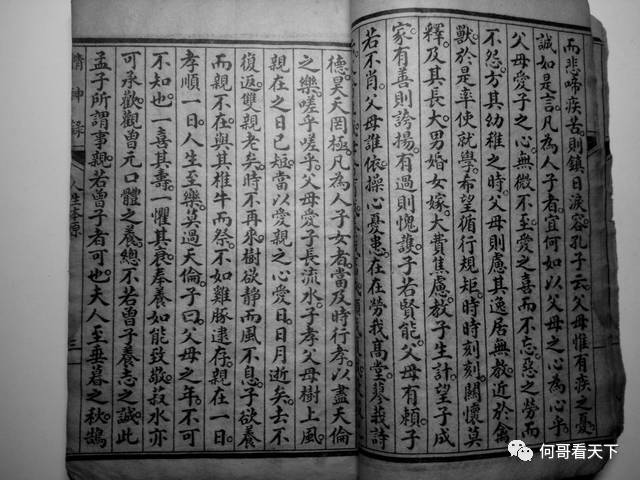 而悲啼疾苦則鎮日淚容孔子云父母惟有疾之憂
誠如是言凡為人子者宜何如以父母之心為心乎
父母愛子之心無微不至愛之喜而不忘惡之勞而
不怨方其幼稚之時父母則慮其逸居無教近於禽
獸於是率使就學希望循行規矩時時刻刻關懷莫
釋及其長大男婚女嫁大費焦慮教子生計望子成
家有善則誇揚有過則愧護子若賢能父母有賴子
若不肖父母誰依操心憂患在在勞我高堂蓼莪詩
德昊天罔極凡為人子女者當及時行孝以盡天倫
之樂嗟乎嗟乎父母愛子長流水子孝父母樹上風
親在之日已短當以愛親之心愛日日月逝矣去不
復返雙親老矣時不再來樹欲靜而風不息子欲養
而親不在與其椎牛而祭不如雞豚逮存親在一日
孝順一日人生至樂莫過天倫子曰父母之年不可
不知也一喜其壽一懼其衰奉養如能致敬菽水亦
可承歡觀曾元口體之養總不若曾子養志之誠此
孟子所謂事親若曾子者可也夫人至垂暮之秋鵠
精神錄 人生本原 三
何哥看天下